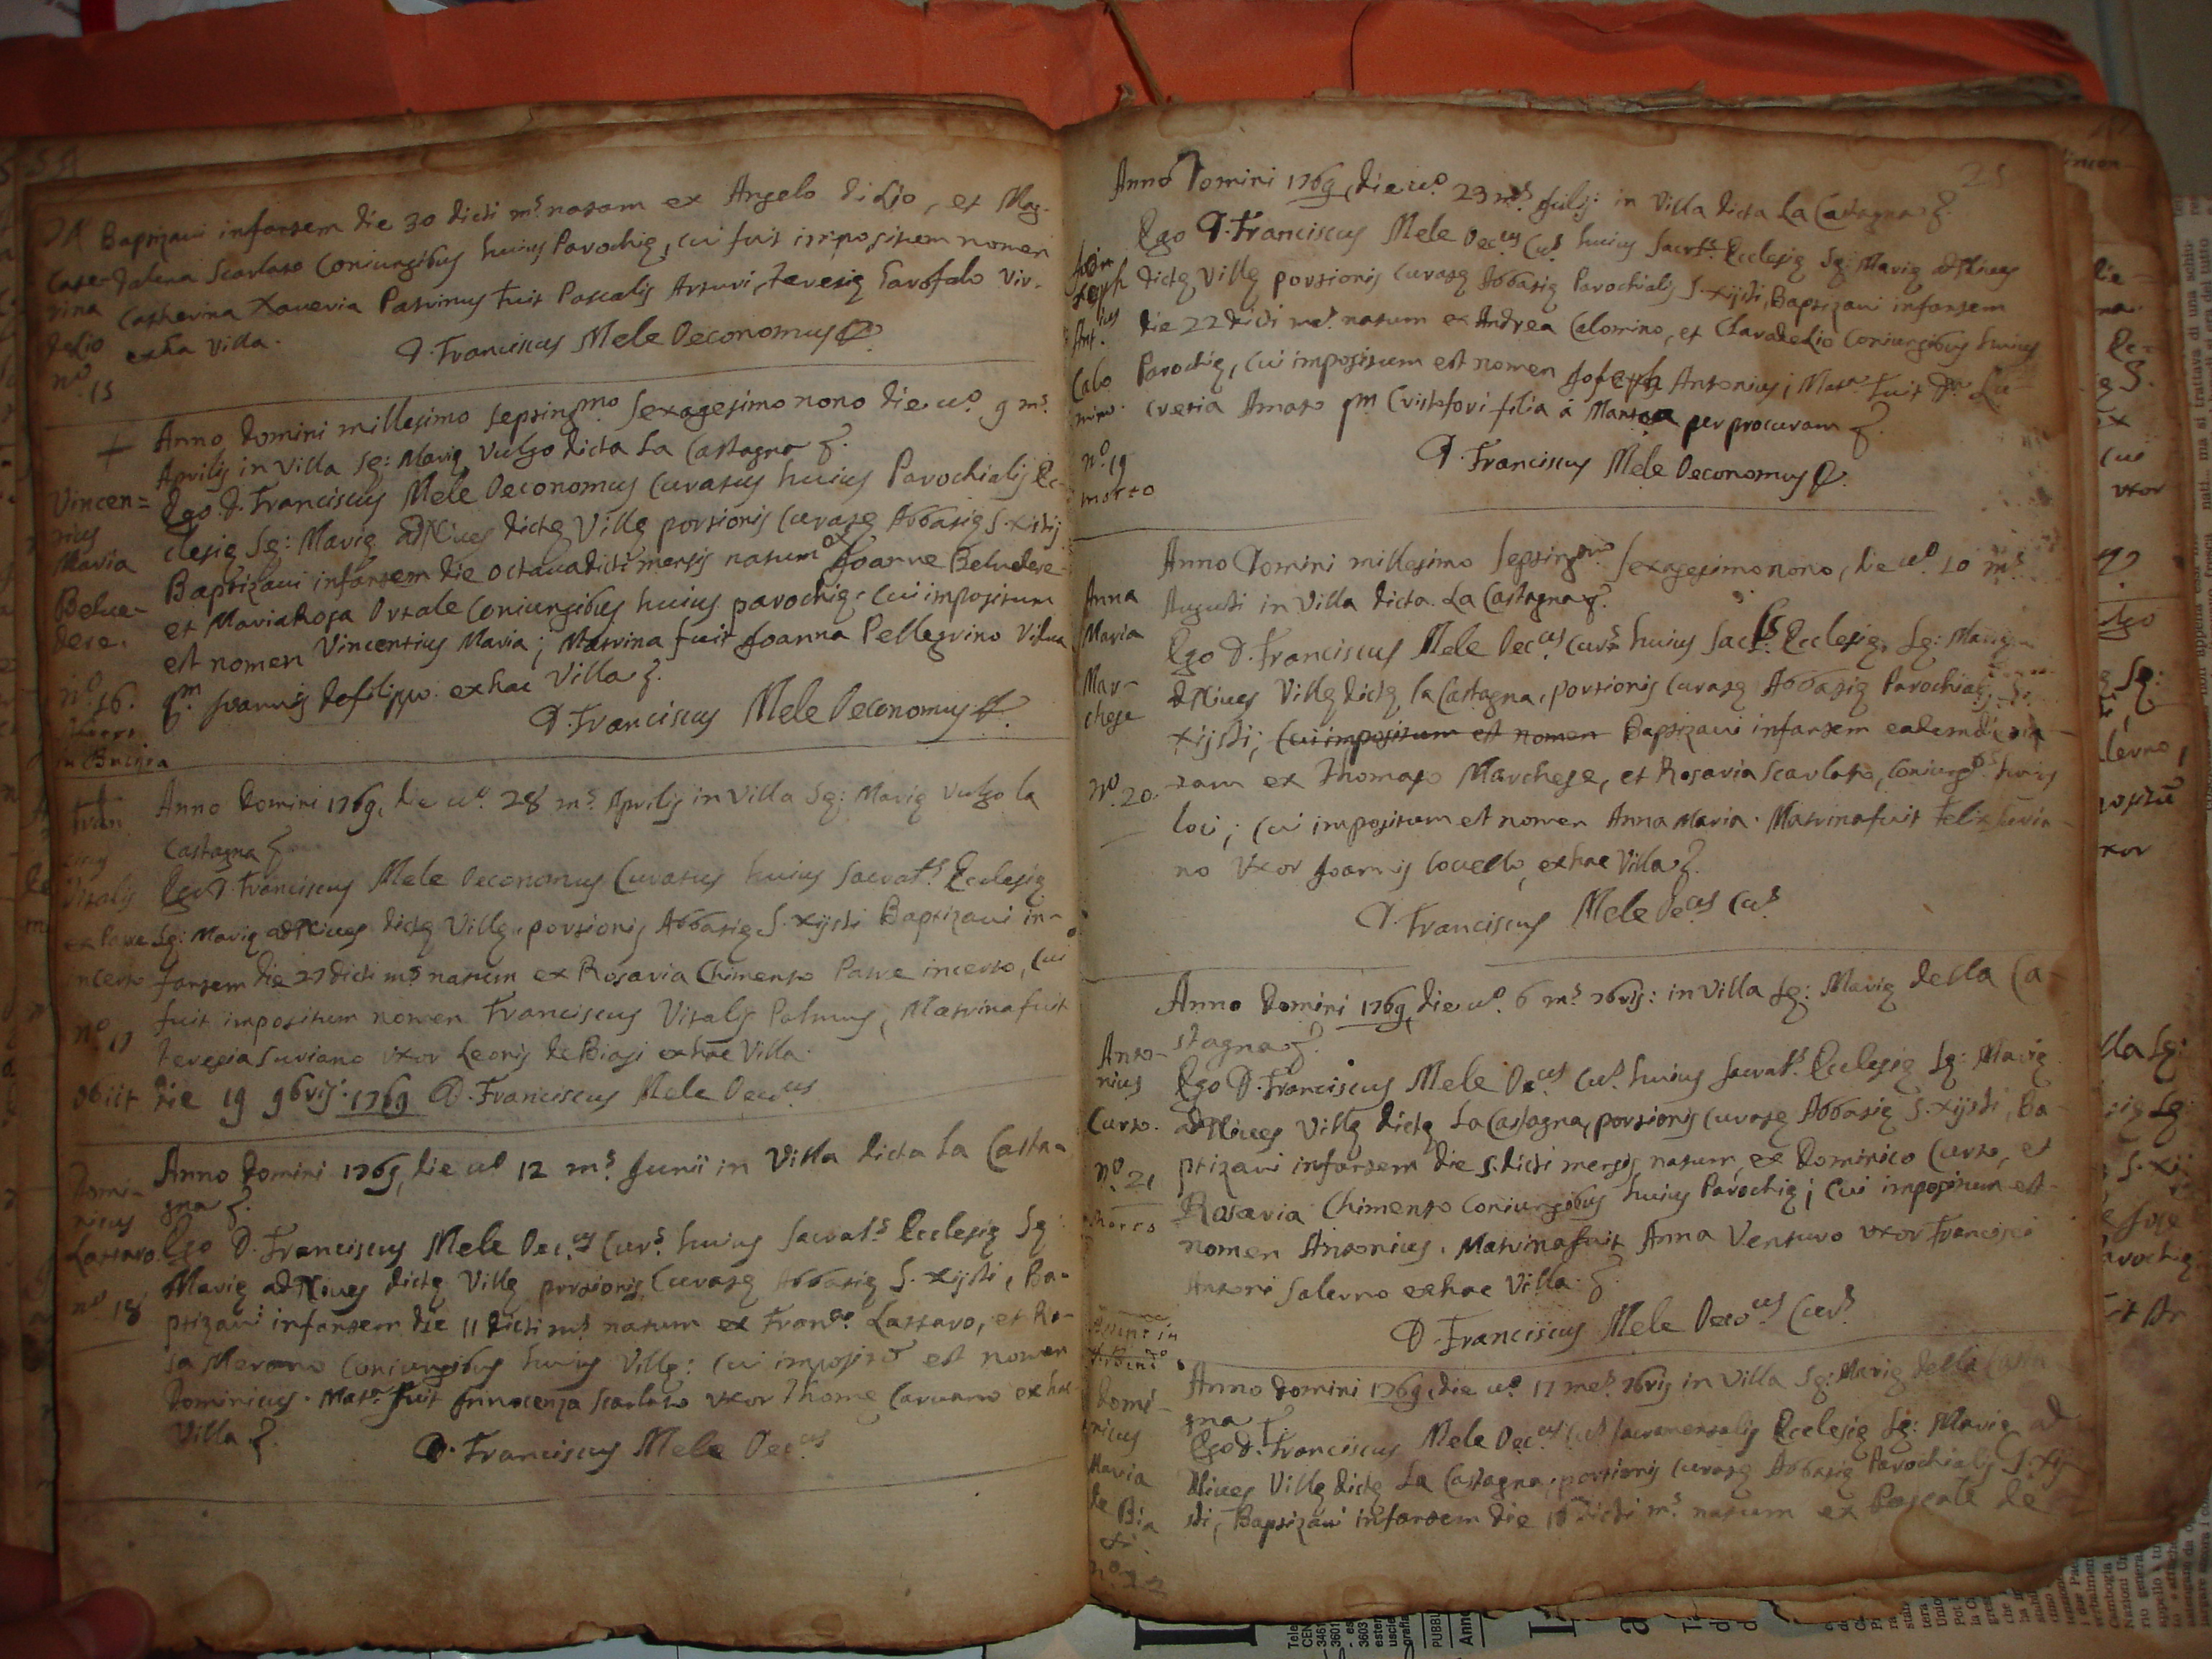 Baptizaui infantem die 30 dicti m.s natam ex Angelo di Lio, et Mag-
dalena Scarlato Coniungibus huius Parochię, cui fuit impositum nomen
Catherina Xaveria Patrinus fuit Pascalis Arturi, Teresię Garofalo Vir.
exha Villa.
D. Franciscus Mele Oeconomus
Cate-
rina
deLio
n.o 15
Anno Domini millesimo septing.mo sexagesimo nono die u.o 9 m.s
Aprilis in Villa Sę: Marię Vulgo dicta La Castagna
Ego D. Franciscus Mele Oeconomus Curatus huius Parochialis Ec-
clesię Sę: Marię ad Niues dictę Villę portionis Curatę Abbatię S. Xisti
Baptizaui infantem die octaua dicti mensis natum ex Joanne Beluedere
et Maria Rosa Ortale Coniungibus huius parochię, cui impositum
est nomen Vincentius Maria; Matrina fuit Joanna Pellegrino Vidua
q.m Joannis deFilippo. exhac Villa
D. Franciscus Mele Oeconomus
Vincen=
tius
Maria
Belue-
dere.
n.o 16.
Anno Domini 1769, die u.o 28 m.s Aprilis in Villa Sę: Marię Vulgo la
Castagna
Ego D. Franciscus Mele Oeconomus Curatus huius Sacrat.s Ecclesię
Sę: Marię ad Niues dictę Villę, portionis Abbatię S. Xysti Baptizaui in-
fantem die 27 dicti m.s natum ex Rosaria Chimento Patre incerto, cui
fuit impositum nomen Franciscus Vitalis Palmus, Matrina fuit
Teresia Suriano uxor Leonis de Biasi exhac Villa.
Obiit die 19 9bris: 1769 D. Franciscus Mele Oeco.us
Fran
ciscus
Vitalis
ex Patre
incerto
n.o 17
Anno Domini 1769, die u.o 12 m.s Junii in Villa dicta La Casta-
gna
Ego D. Franciscus Mele Oec.us Cur.s huius Sacrat.s Ecclesię Sę:
Marię ad Niues dictę Villę portionis Curatę Abbatię S. Xysti, Ba-
ptizaui infantem die 11 dicti m.s natum ex Fran.co Lattaro, et Ro-
sa Merano Coniungibus huius Villę: cui impositũ est nomen
Dominicus. Mat.a fuit Innocenza Scarlato uxor Thome Caruano exhac
Villa
D. Franciscus Mele Oec.us
Domi-
nicus
Lattaro.
n.o 18
Anno Domini 1769, die u.o 23 m.s Julij: in Villa dicta La Castagna
Ego D. Franciscus Mele Oec.us Cu.s huius Sacrt.s Ecclesię Sę: Marię ad Niues
dictę Villę portionis Curatę Abbatię Parochialis S. Xysti, Baptizaui infantem
die 22 dicti me.s natum ex Andrea Calomino, et Clara deLio Coniungibus huius
Parochię, cui impositum est nomen Joseph Antonius; Mat.a fuit D.a Lu-
cretia Amato q.m Cristofori filia à Marzoa per procuram
D. Franciscus Mele Oeconomus
Joseph
Ant.ius
Calo
mino.
n.o 19
morto
Anno Domini millesimo septing.mo sexagesimo nono, die u.o 10 m.s
Augusti in Villa dicta La Castagna
Ego D. Franciscus Mele Oec.us Cur.s huius Sac.s Ecclesię, Sę: Marię
ad Niues Villę dictę la Castagna, portionis Curatę Abbatię Parochialis S.
Xijsti; cui impositum est nomen Baptizaui infantem eadem die na-
tam ex Thomaso Marchese, et Rosaria Scarlato, Coniung.s huius
loci; cui impositum est nomen Anna Maria. Matrina fuit Felix Suria-
no Uxor Joannis Covello, exhac Villa
D. Franciscus Mele Oec.us Cu.s
Anna
Maria
Mar-
chese
N.o 20.
Anno Domini 1769, die u.o 6 m.s 7bris: in Villa Sę: Marię della Ca-
stagna
Ego D. Franciscus Mele Oe.us Cu.s huius Sacrat.s Ecclesię Sę: Marię
ad Niues Villę dictę La Castagna, portionis Curatę Abbatię S. Xijsti, Ba-
ptizaui infantem die 5 dicti mensis natum, ex Dominico Curto, et
Rosaria Chimento Coniungibus huius Parochię; Cui impositum est
nomen Antonius. Matrina fuit Anna Venturo uxor Francisci
Antoni Salerno exhac Villa.
D. Franciscus Mele Oeco.us Cur.s
Anto-
nius
Curto.
N.o 21
morto
Anno Domini 1769, die u.o 17 me.s 7bris in Villa Sę: Marię della Casta
gna
Ego D. Franciscus Mele Oec.us Cu.s Sacramentalis Ecclesię Sę: Marię ad
Niues Villę dictę La Castagna, portionis Curatę Abbatię Parochialis S. Xij-
sti, Baptizaui infantem die 16 dicti m.s natum ex Pascale de
Domi-
nicus
Maria
de Bia
si.